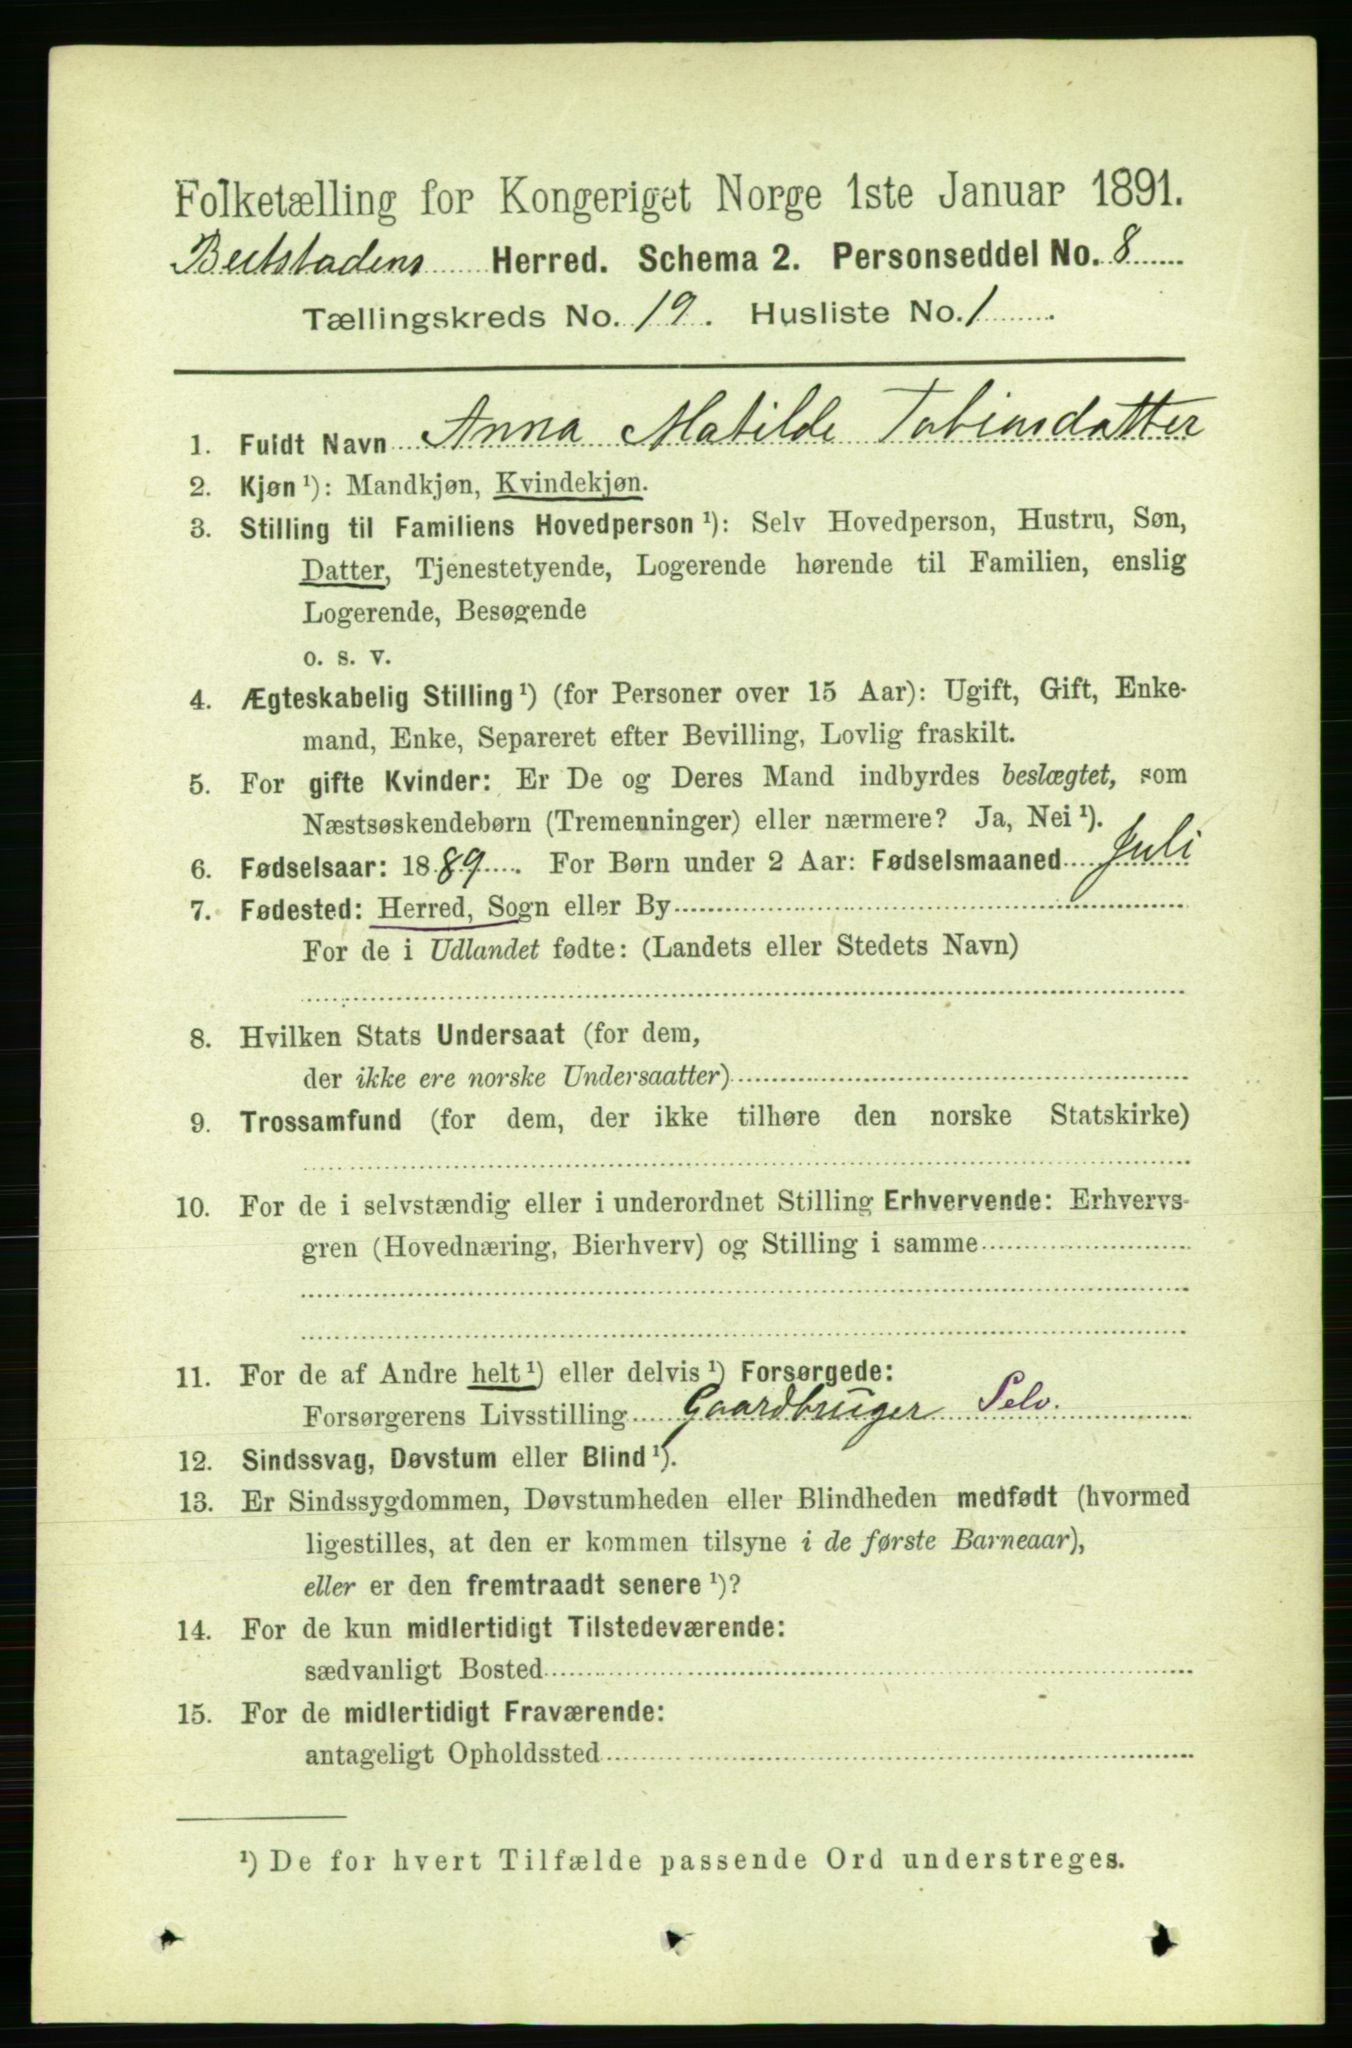 Folketælling for Kongeriget Norge 1ste Januar 1891.
Beitstadens Herred. Schema 2. Personseddel No. 8
Tællingskreds No. 19. Husliste No. 1
1. Fuldt Navn Anna Matilde Tobiasdatter
2. Kjøn ¹): Mandkjøn, Kvindekjøn.
3. Stilling til Familiens Hovedperson ¹): Selv Hovedperson, Hustru, Søn,
Datter, Tjenestetyende, Logerende hørende til Familien, enslig
Logerende, Besøgende
o. s. v.
4. Ægteskabelig Stilling ¹) (for Personer over 15 Aar): Ugift, Gift, Enke-
mand, Enke, Separeret efter Bevilling, Lovlig fraskilt.
5. For gifte Kvinder: Er De og Deres Mand indbyrdes beslægtet, som
Næstsøskendebørn (Tremenninger) eller nærmere? Ja, Nei ¹).
6. Fødselsaar: 1889. For Børn under 2 Aar: Fødselsmaaned Juli
7. Fødested: Herred, Sogn eller By
For de i Udlandet fødte: (Landets eller Stedets Navn)
8. Hvilken Stats Undersaat (for dem,
der ikke ere norske Undersaatter)
9. Trossamfund (for dem, der ikke tilhøre den norske Statskirke)
10. For de i selvstændig eller i underordnet Stilling Erhvervende: Erhvervs-
gren (Hovednæring, Bierhverv) og Stilling i samme
11. For de af Andre helt ¹) eller delvis ¹) Forsørgede:
Forsørgerens Livsstilling Gaardbruger Selv.
12. Sindssvag, Døvstum eller Blind ¹).
13. Er Sindssygdommen, Døvstumheden eller Blindheden medfødt (hvormed
ligestilles, at den er kommen tilsyne i de første Barneaar),
eller er den fremtraadt senere ¹)?
14. For de kun midlertidigt Tilstedeværende:
sædvanligt Bosted
15. For de midlertidigt Fraværende:
antageligt Opholdssted
¹) De for hvert Tilfælde passende Ord understreges.